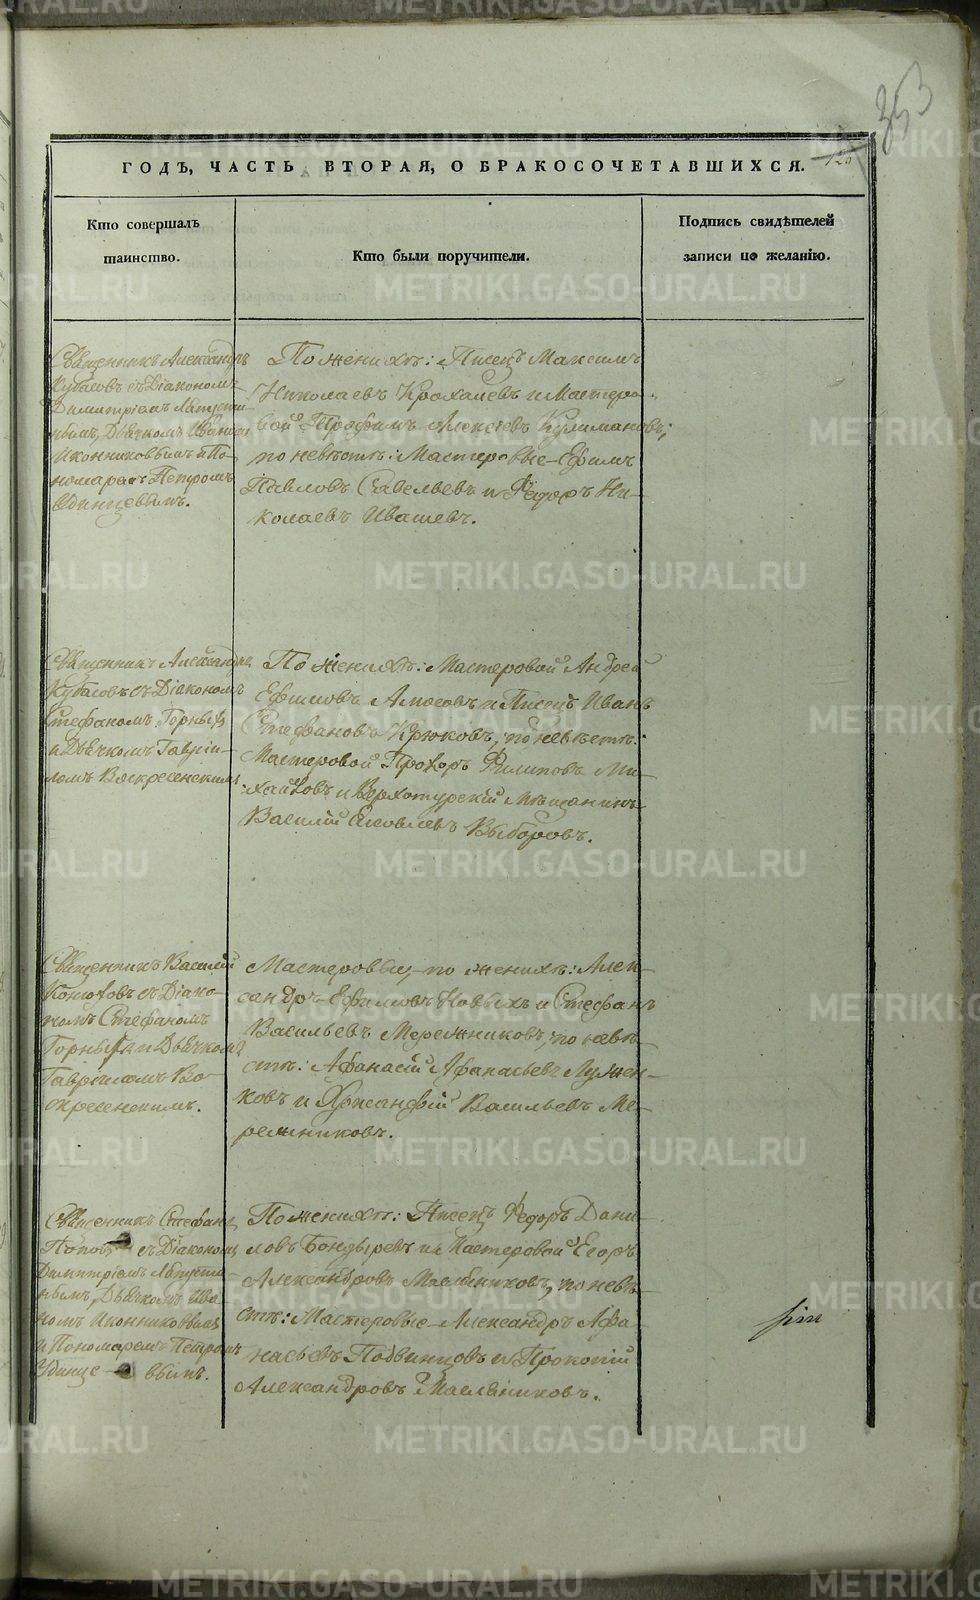 353
ГОДЪ, ЧАСТЬ ВТОРАЯ, О БРАКОСОЧЕТАВШИХСЯ.
Кто совершалъ
таинство.
Кто были поручители.
Подпись свидѣтелей
записи по желанію.
Священникъ Александръ
Кубасовъ съ Діакономъ
Димитріемъ
Дьячкомъ Иваномъ
Иконниковымъ и По-
номаремъ Петромъ
Удинцевымъ.
По женихѣ: Писецъ Максимъ
Николаевъ Крохалевъ и Мастеро-
вой Трофимъ Алексѣевъ Кулимановъ;
по невѣстѣ: Мастеровые Ефимъ
Павловъ Савельевъ и Федоръ Ни-
колаевъ Ивашевъ.
Священникъ Александръ
Кубасовъ съ Діакономъ
Стефаномъ Горныхъ
и Дьячкомъ Гавріи-
ломъ Воскресенскимъ
По женихѣ: Мастеровой Андрей
Ефимовъ Амосовъ и Писецъ Иванъ
Стефановъ Крюковъ, по невѣстѣ:
Мастеровой Прохоръ Филиповъ Ми-
хайловъ и Верхотурскій Мѣщанинъ
Василій Яковлевъ Выборовъ.
Священникъ Василій
Конюховъ съ Діако-
номъ Стефаномъ
Горныхъ и Дьячкомъ
Гавріиломъ Во-
скресенскимъ.
Мастеровые, по женихѣ: Алек-
сандръ Ефимовъ Новыхъ и Стефанъ
Васильевъ Мережниковъ, по невѣ-
стѣ: Афанасій Афанасьевъ
и Хрисанфій Васильевъ Ме-
режниковъ.
Священникъ Стефанъ
Поповъ съ Діакономъ
Димитріемъ
Дьячкомъ Ива-
номъ Иконниковымъ
и Пономаремъ Петромъ
Удинце — вымъ.
По женихѣ: Писецъ Федоръ Дани-
ловъ Бондыревъ и Мастеровой Егоръ
Александровъ Масленниковъ, по невѣ-
стѣ: Мастеровые Александръ Афа-
насьевъ Подвинцовъ и Прокопій
Александровъ Масленниковъ.
METRIKI.GASO-URAL.RU